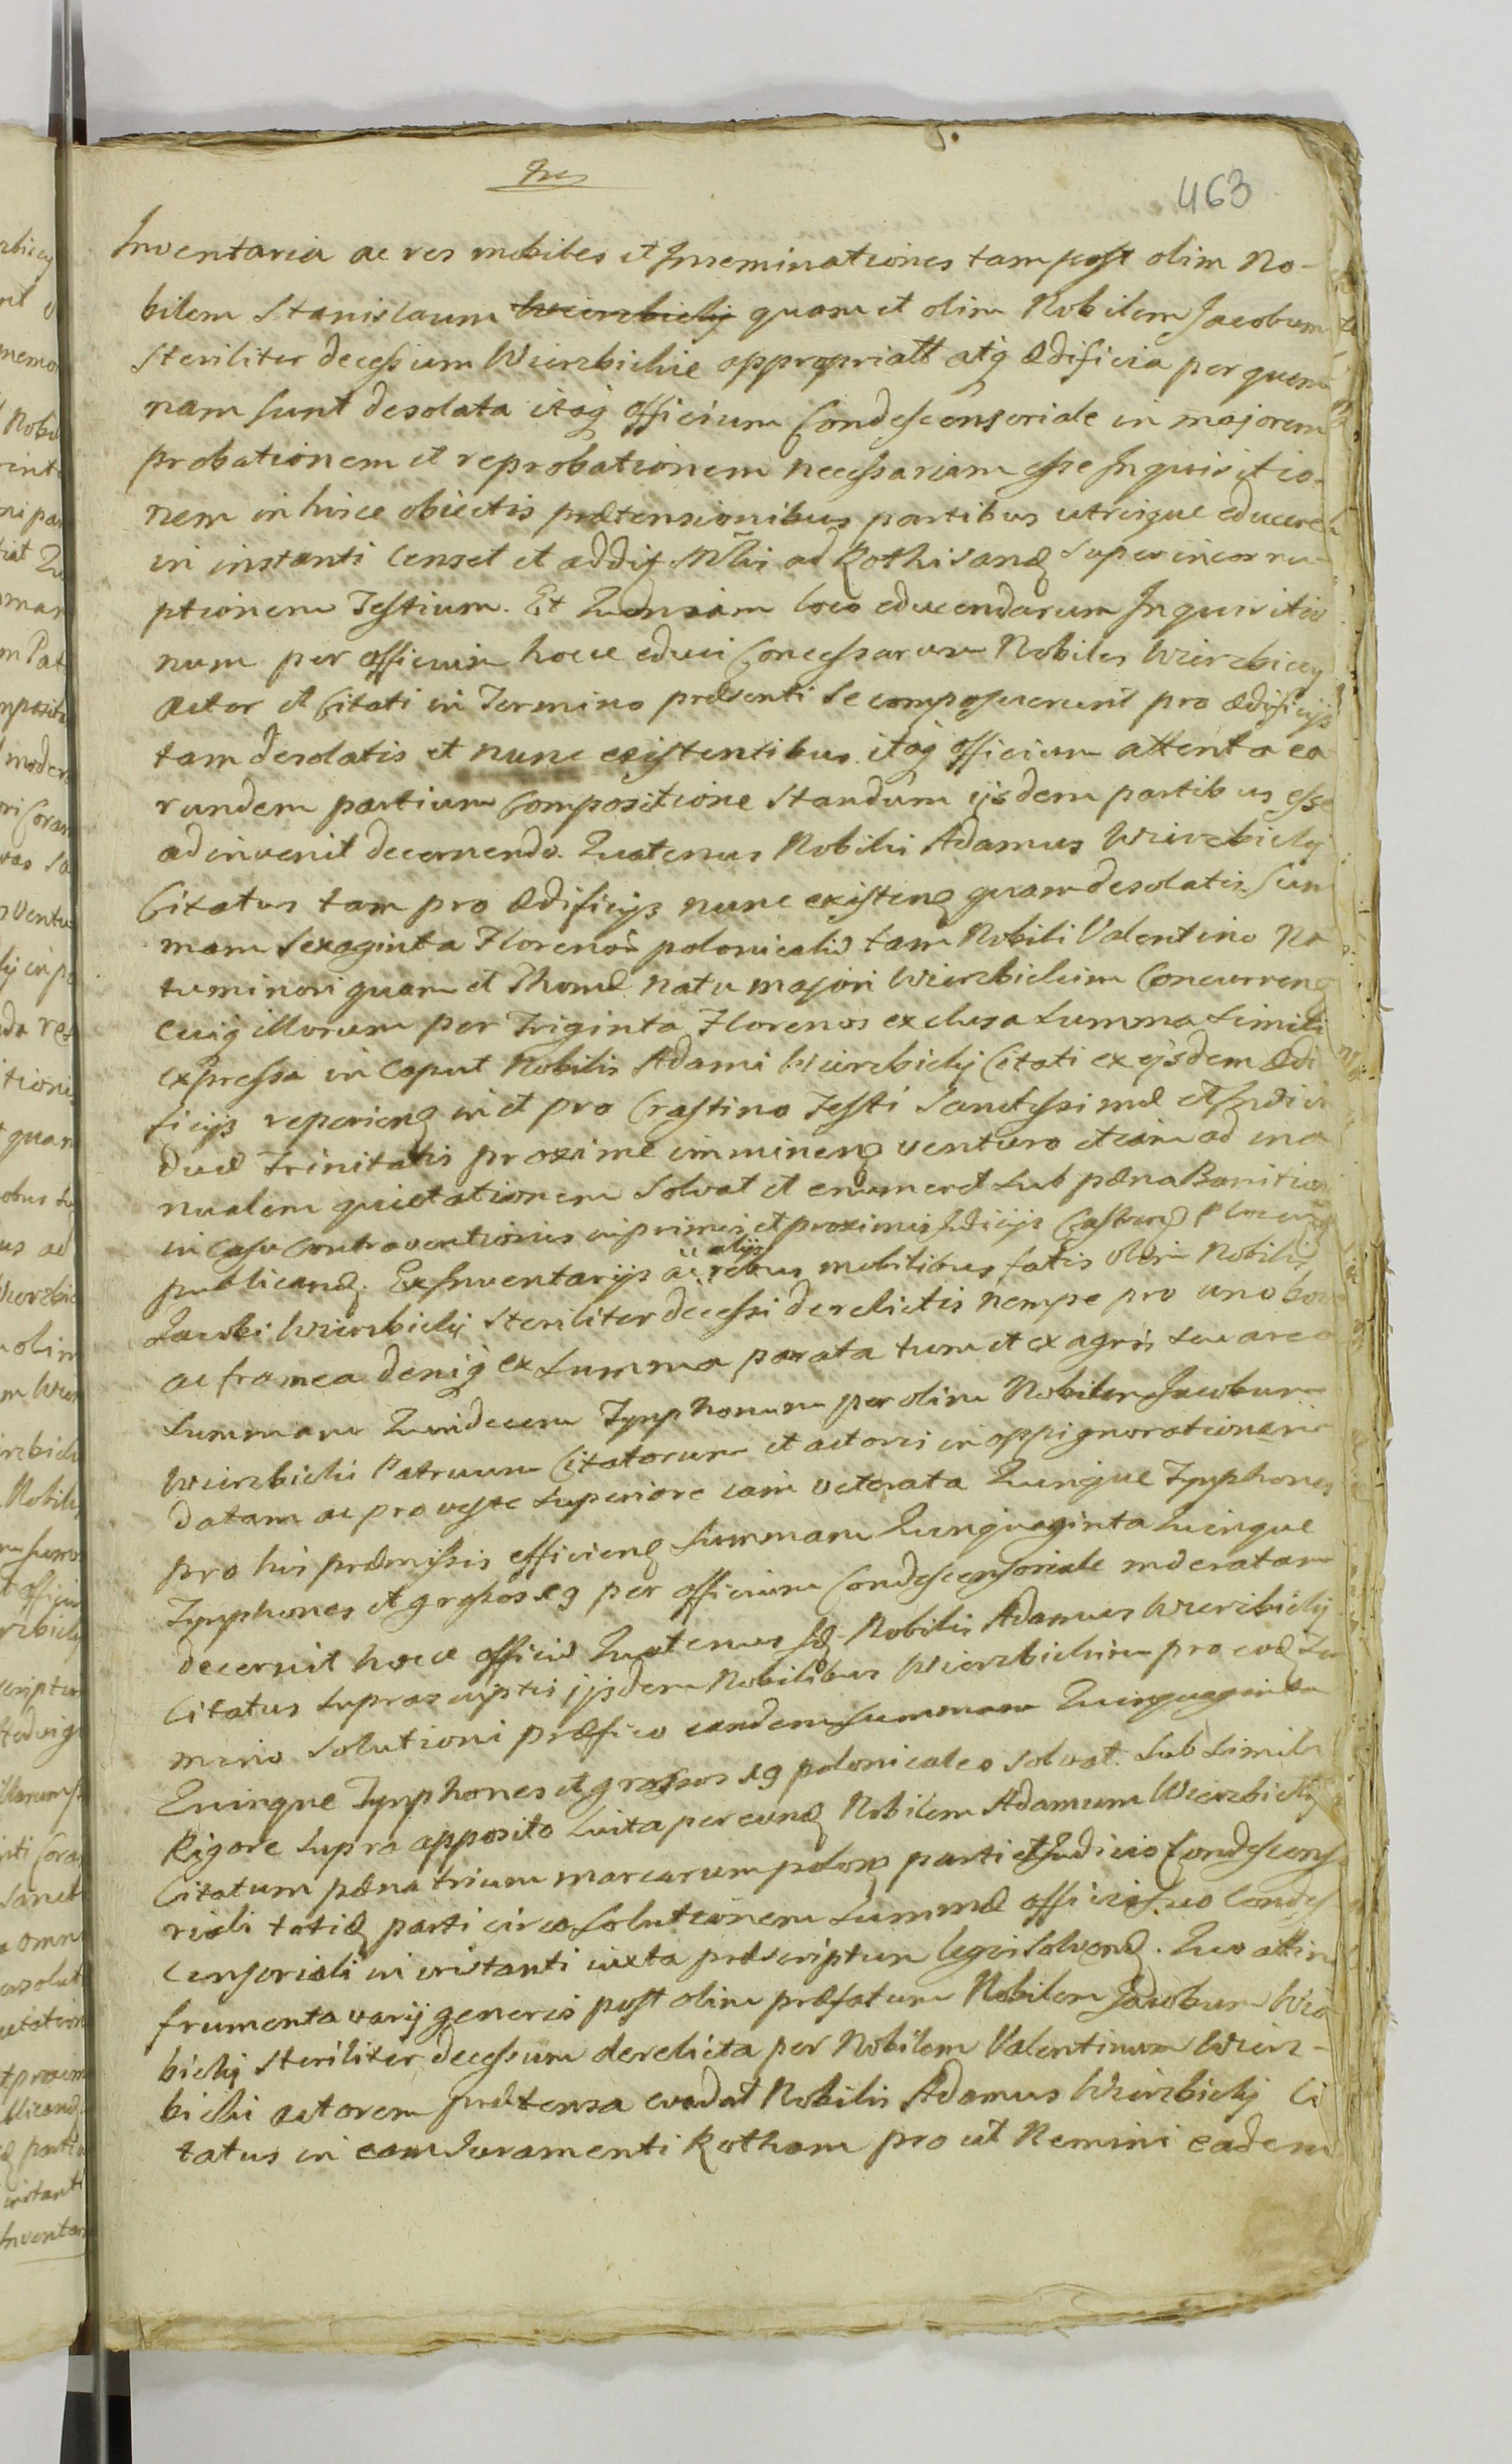 463
Inventaria ac res mobiles et Inseminationes tam post olim No-
bilem Stanislaum Wierzbickij quam et olim Nobilem Jacobum
steriliter decessum Wierzbickie appropriatt atq ædificia per quem
nam sunt desolata itaq officium Condescensoriale in majorem
probationem et reprobationem necessariam esse Inquisitio-
nem in hisce obiectis prætensionibus partibus utrisque educere
in instanti censet et addit ad Rothisandę super incorru-
ptionem Testium. Et loco educendarum Inquisitio
num per officium hocce educi Concessarum Nobiles Wierzbiccy
Actor et Citati in Termino præsenti se composuerunt pro ædificijs
tam desolatis et nunc existentibus itaq officium attenta ea
rundem partium Compositione standum ijsdem partibus esse
adinvenit decernendo. Quatenus Nobilis Adamus Wierzbickij
Citatus tam pro ædificijs nunc existenę quam desolatis Sum
mam Sexaginta Florenos polonicaliū tam Nobili Valentino Na
tu minori quam et Thomæ natu majori Wierzbickim Concurrenę
cuiq illorum per Triginta Florenos exclusa Summa simili
expressa in Caput Nobilis Adami Wierzbickij Citati ex ejsdem ædi
ficijs reperienę in et pro Crastino Festi Sanctissimæ et Indivi
duæ Trinitatis proxime imminenę venturo etiam ad ma
nualem quietationem solvat et enumeret sub pæna Banitio
in casu Contraventionis in primis et proximis Iudicijs Castrenę
publicandę. Ex Inventarijs ac alijs rebus mobilibus fatis olim Nobilis
Jacobi Wierzbickij steriliter decessi derelictis nempe pro uno bove
ac framea deniq ex Summa parata tum et ex agris seu area
Summam Quindecem Tynphonum per olim Nobilem Jacobum
Wierzbicki Patruum Citatorum et actoris in oppignorationem
datam ac pro veste superiore iam veterata Quinque Tynphones
pro his præmissis efficienę Summam Quinquaginta Quinque
Tynphones et grossos 19 per officium Condescensoriale mderatam
decernit hocce officiū Quatenus Nobilis Adamus Wierzbickij
Citatus suprascriptis ijsdem Nobilibus Wierzbickim pro eodę Ter
mino solutioni præfixo eandem Summam Quinquaginta
Quinque Tynphones et grossos 19 polonicales solvat sub simili
Rigore supra apposito luita per eundę Nobilem Adamum Wierzbickij
Citatum pæna trium marcarum parti et Iudicio Condescenso
riali totię parti circa solutionem Summæ officio suo Condes
censoriali in instanti iuxta præscriptum legis solvendę. Quo attin
frumenta varij generis post olim præfatum Nobilem Jacobum Wierz
bickij steriliter decessum derelicta per Nobilem Valentinum Wierz-
bicki actorem prætensa evadat Nobilis Adamus Wierzbickij Ci
tatus in eam Juramenti Rotham pro ut Nemini eadem